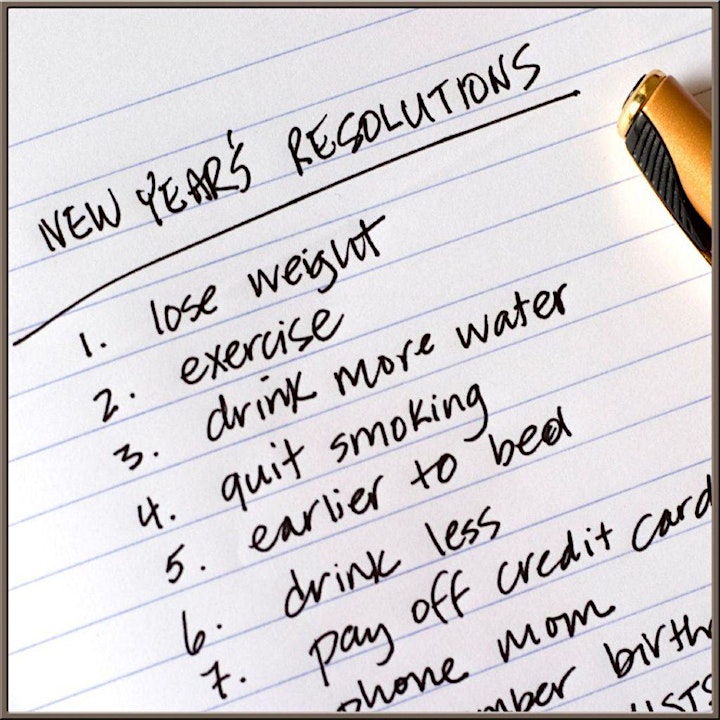 NEW YEAR'S RESOLUTIONS
1. lose weight
2. exercise
3. drink more water
4. quit smoking
5. earlier to bed
6. drink less
7. pay off credit card
phone mom